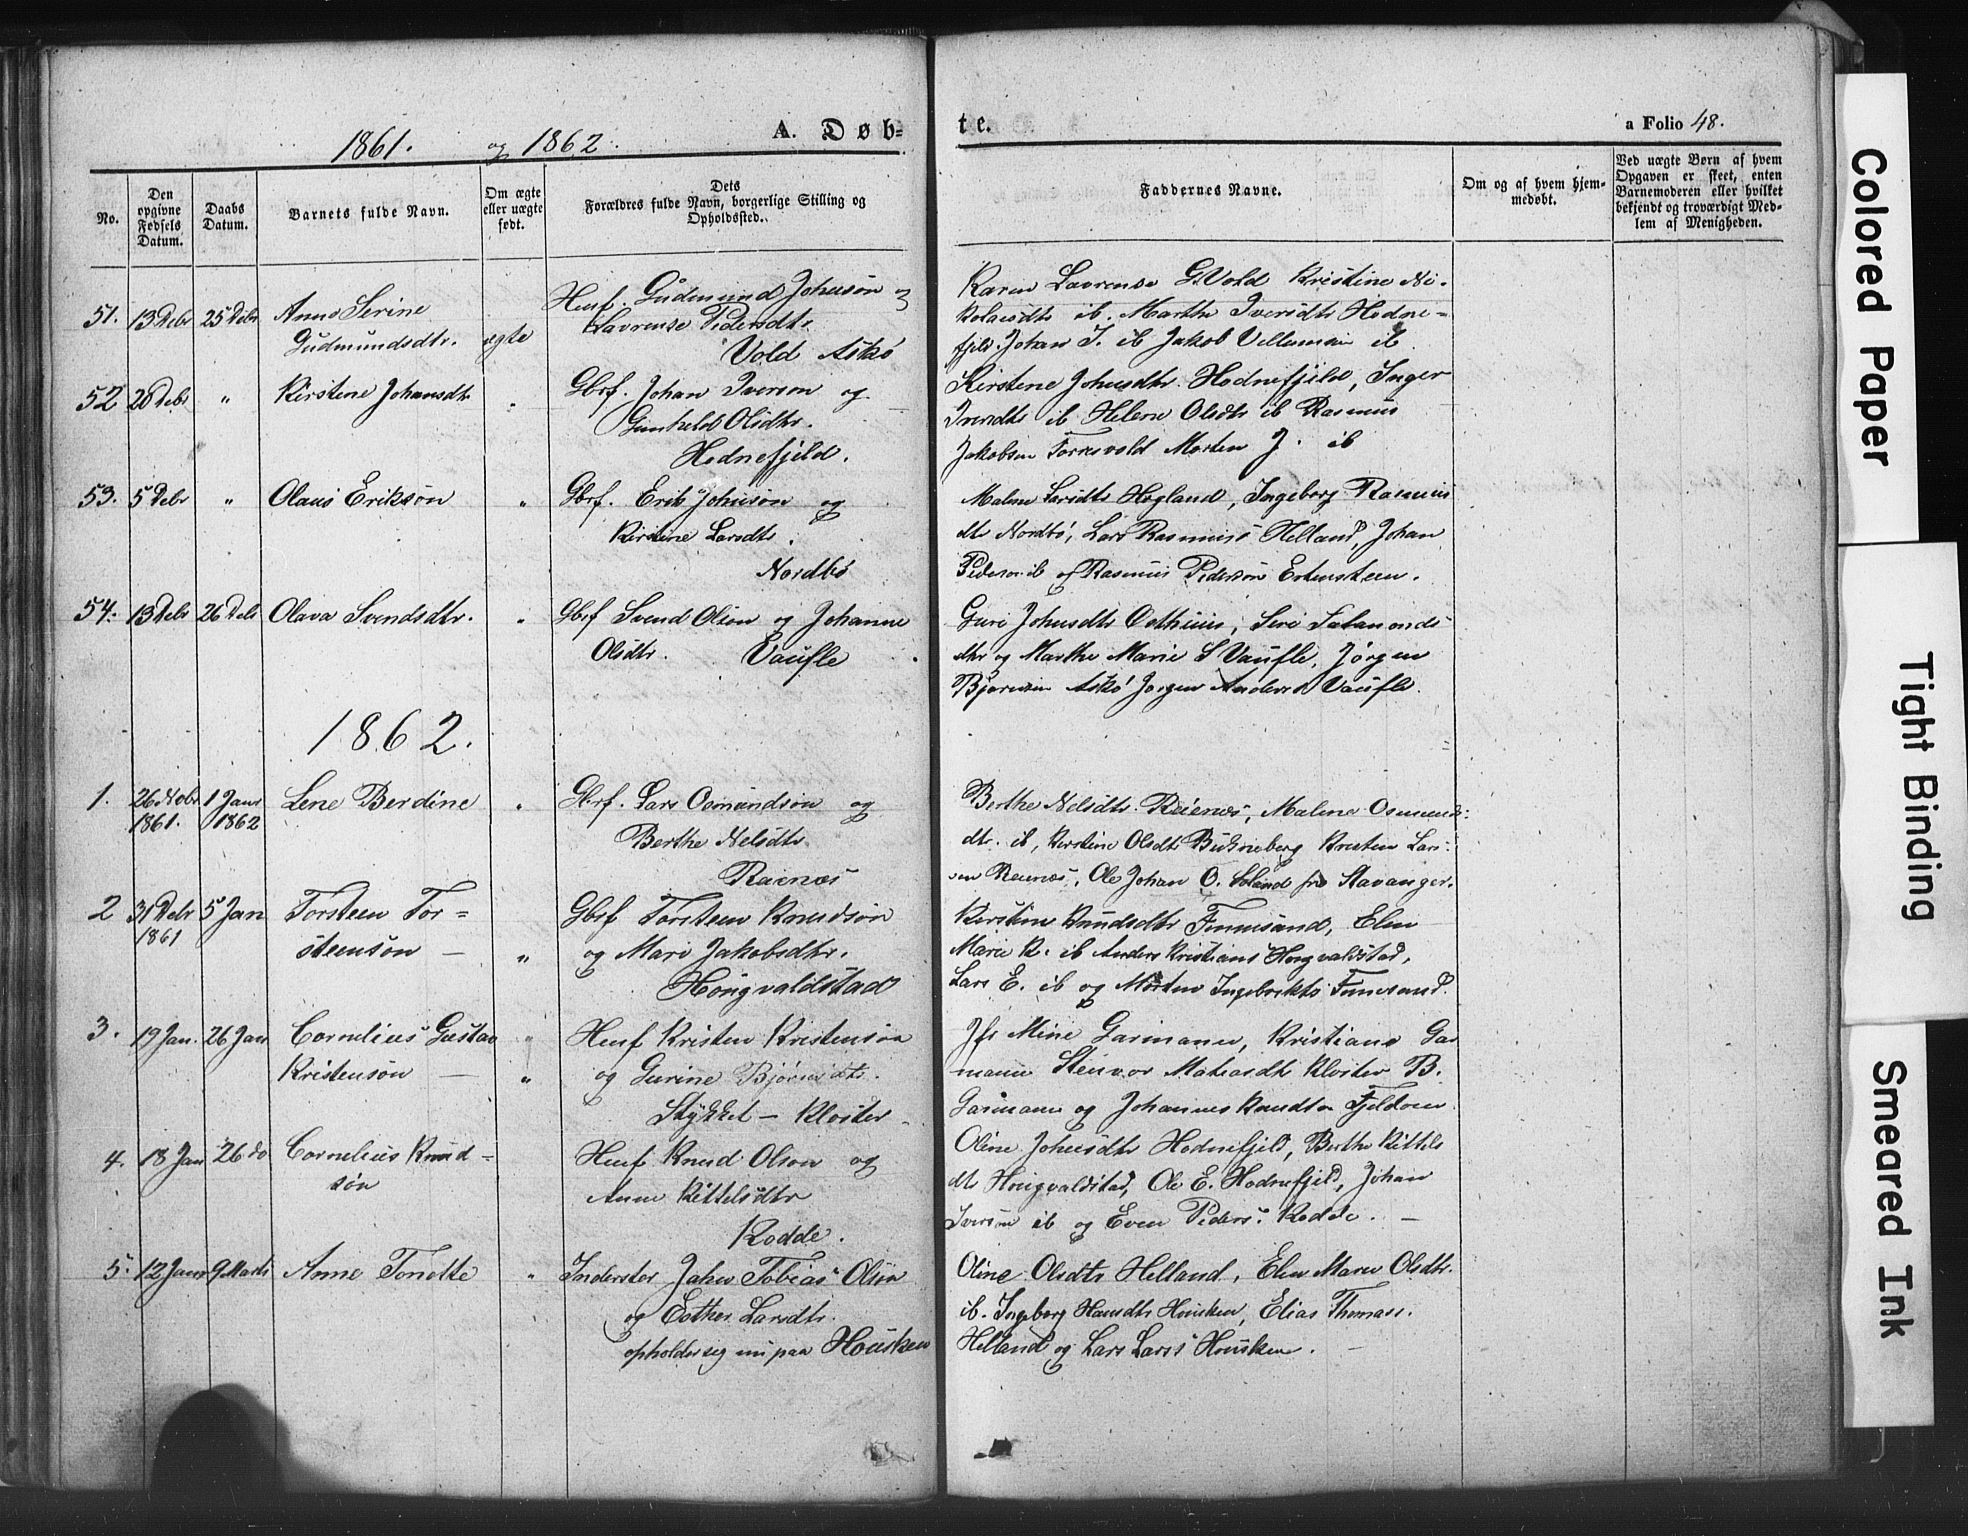 1861. og 1862. A. Døb-
te. a Folio 48.
No.
Den opgivne Fødsels Datum.
Daabs Datum.
Barnets fulde Navn.
Om ægte eller uægte født.
Dets Forældres fulde Navn, borgerlige Stilling og Opholdssted.
Faddernes Navne.
Om og af hvem hjem-
medøbt.
Ved uægte Børn af hvem
Opgaven er skeet, enten
Barnemoderen eller hvilket
bekjendt og troværdigt Med-
lem af Menigheden.
51. 13 Debr 25 Debr Anne Serine
Gudmundsdtr. ægte
Husf. Gudmund Johnsøn og
Lavrense Pedersdtr.
Vold Askø
Karen Lavrense G. Vold Kristine Ni-
kolaisdtr ib. Marthe Iversdtr Hodne-
fjeld. Johan I. ib Jakob Villumsen ib.
52 28 Debr " Kirstene Johansdtr "
Gbrf. Johan Iversen og
Gunhild Olsdtr.
Hodnefjeld.
Kirstene Johnsdtr. Hodnefjeld, Inger
Iversdtr ib Helene Olsdtr ib Rasmus
Jakobsen Torresvold Morten J. ib
53. 5 Debr " Olaus Eriksøn "
Gbrf. Erik Johnsøn og
Kirstine Larsdtr.
Nordbø
Malene Larsdtr Hegland, Ingeborg Rasmus
dtr Nordbø, Lars Rasmuss Helland, Johan
Pederse. ib og Rasmus Pedersøn Eltensteen.
54. 13 Debr 26 Debr Olava Svendsdtr. "
Gbrf Svend Olson og Johanne
Olsdtr. Vaufle
Guri Johnsdtr Oethuus, Siri Salamonds
dtr og Marthe Marie S Vaufle, Jørgen
Bjørnsen Askø Jørgen Anders Vaufle.
1862.
1. 26 Nobr 1 Janr Lene Berdine "
1861. 1862
Gbrf. Lars Osmundsøn og
Berthe Nelsdtr.
Reienæs
Berthe Nelsdtr. Reienæs, Malene Osmunds-
dtr. ib, Kirstine Olsdtr Bukneberg Kristen Lars-
sen Reienæs, Ole Johan O. Soland fra Stavanger.
2 31 Debr 5 Jan Torsteen Tor=
1861 steensøn — "
Gbrf Torsteen Knudsøn
og Mari Jakobsdtr.
Hougvaldstad
Kirstine Knudsdtr Finnesand, Elen
Marie K. ib Anders Kristians Hougvaldstad,
Lars E. ib og Morten Ingebrikts Finnesand.
3. 19 Jan. 26 Jan Cornelius Gustav "
Kristensøn — "
Husf Kristen Kristensøn
og Gurine Bjørnsdtr.
Stykket — Kloster
Jfr Mine Garmann, Kristiane Gar
mann Steinvor Matiasdtr Kloster B.
Garmann og Johannes Knudsen Fjeldøen
4. 18 Jan 26 do Cornelius Knud=
søn
Husf Knud Olson og
Anne Kittelsdtr
Rodde.
Oline Johnsdtr Hodnefjeld, Berthe Kittels
dtr Hougvaldstad, Ole E. Hodnefjeld, Johan
Iversøn ib og Even Peders: Rodde. —
5. 12 Janr 9 Marts Anne Tonette "
Inderster John Tobias Olsen
og Esther Larsdtr.
opholder sig nu paa Housken
Oline Olsdtr Helland, Elen Maren Olsdtr.
ib. Ingeborg Hansdtr Housken, Elias Thomass.
Helland og Lars Larss Housken. —
Colored Paper
Tight Binding
Smeared Ink